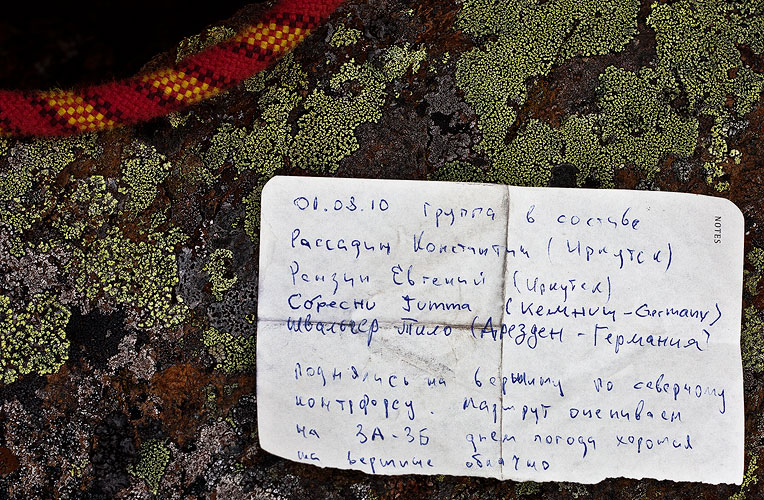 NOTES
01.08.10 группа в составе
Рассадин Константин (Иркутск)
Рензин Евгений (Иркутск)
(Кемниц-Germany)
Тило (Дрезден - Германия)
поднялись на вершину по северному
контрфорсу. Маршрут оцениваем
на 3А-3Б днем погода хорошая
на вершине облачно